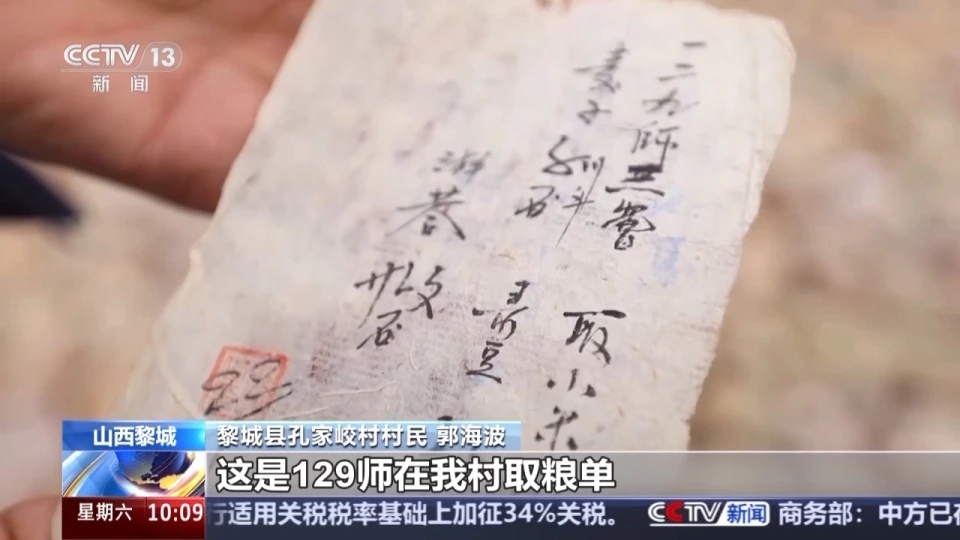 CCTV 13
新闻
一二九师三营
取小米
麦子
青豆
山西黎城
黎城县孔家峧村村民 郭海波
这是129师在我村取粮单
星期六 10:09
行适用关税税率基础上加征34%关税。 CCTV新闻 商务部：中方已在